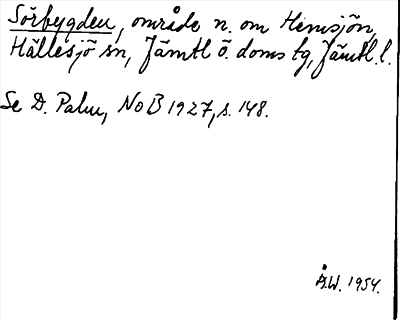 Sörbygden, område n. om Hemsjön,
Hällesjö sn, Jämtl ö. doms tg, Jämtl. l.
Se D. Palm, NoB 1927, s. 148.
Å.W. 1954.